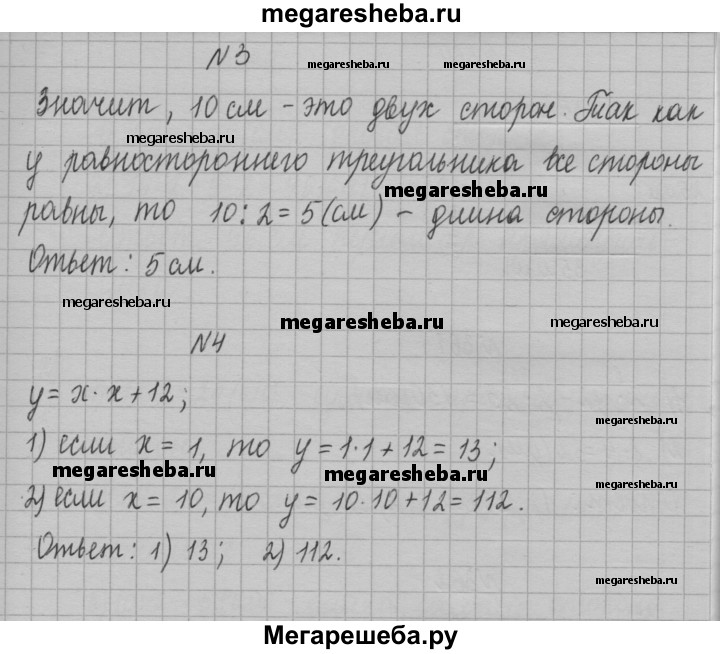 megaresheba.ru
N3
megaresheba.ru megaresheba.ru
Значит, 10 см - это двух сторон. Так как
megaresheba.ru
у равностороннего треугольника все стороны
megaresheba.ru
равны, то 10:2=5(см) - длина стороны.
Ответ: 5 см.
megaresheba.ru megaresheba.ru megaresheba.ru
N4
y=x·x+12;
megaresheba.ru
1) если x=1, то y=1·1+12=13;
megaresheba.ru megaresheba.ru megaresheba.ru
2) если x=10, то y=10·10+12=112.
Ответ: 1) 13; 2) 112.
megaresheba.ru
Мегарешеба.ру